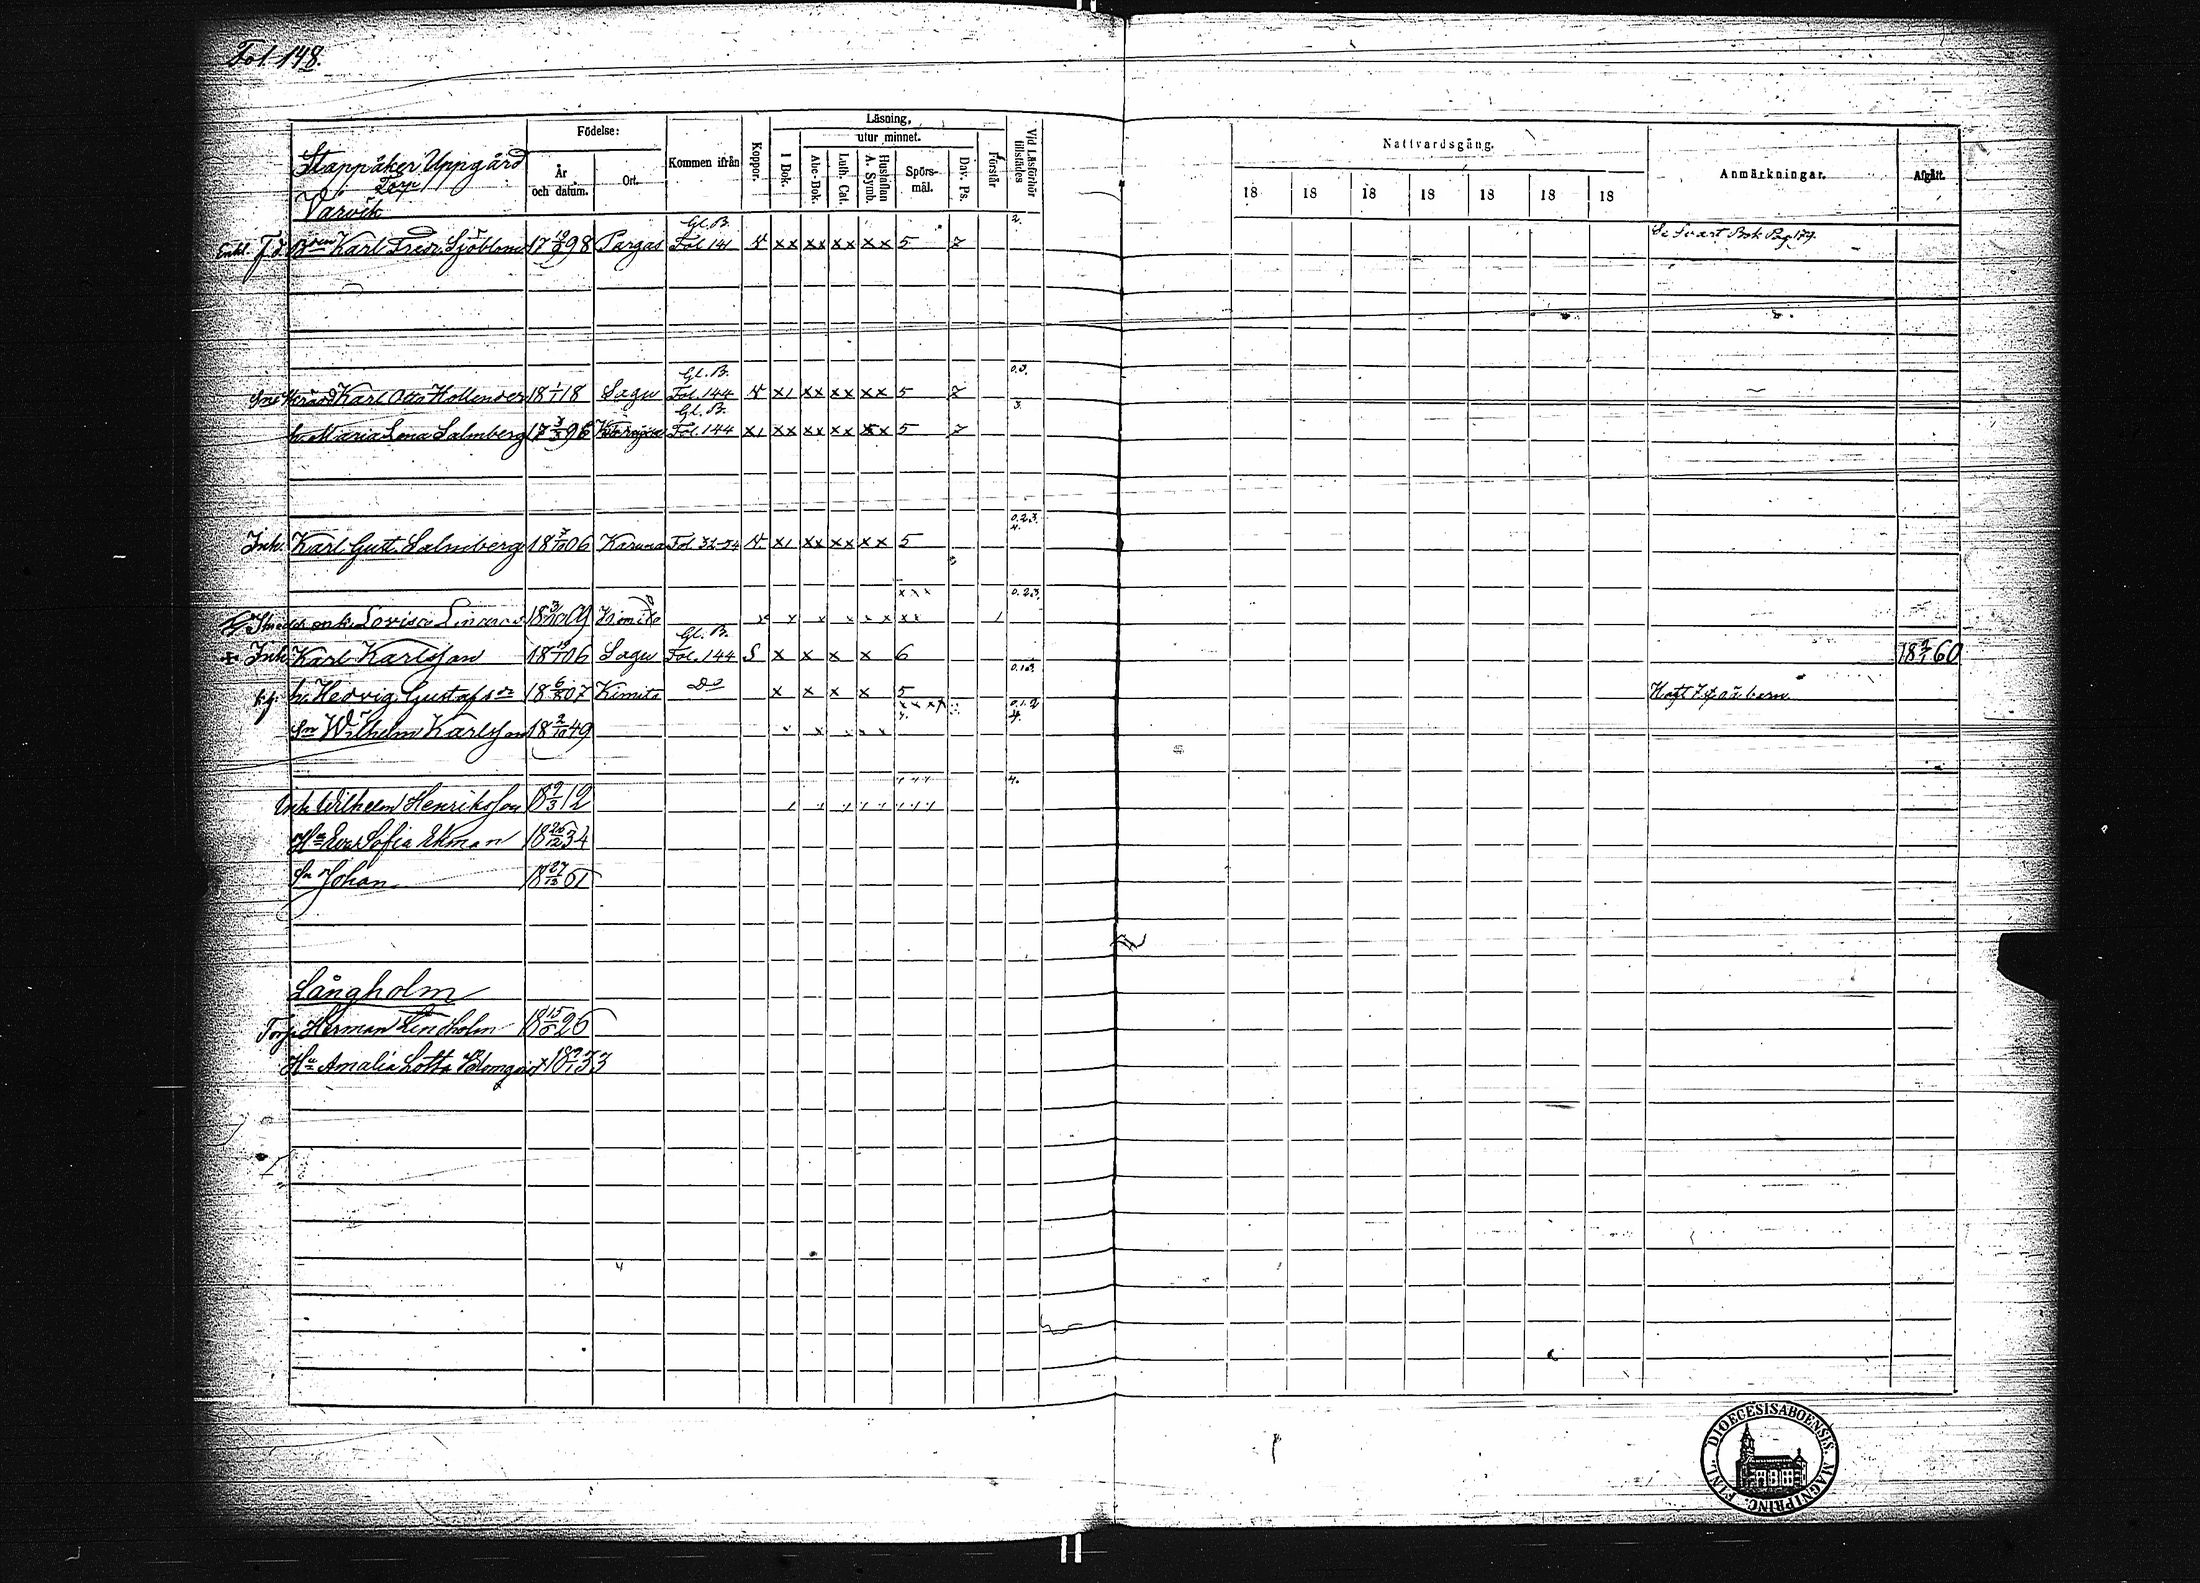 Fol. 148.
Stappåker Uppgård
Torp
Varvik
Födelse:
År och datum.
Ort.
Kommen ifrån
Koppor.
Läsning,
I Bok.
utur minnet.
Abc-Bok.
Luth. Cat.
Hustaflan A. Symb.
Spörs-mål.
Dav. Ps.
Förstår
Vid Läsförhör tillstädes
Nattvardsgång.
18 18 18 18 18 18 18
Anmärkningar.
Afgått.
Enkl. F.d. Bden Karl Fredr. Sjöblom 17 19/9 98 Pargas Gl. B. Fol 141 v xx xx xx xx 5 7 2. Se Svart Bok Pag 179.
Karl Otto Hollender 18 1/1 18 Sagu Gl. B. Fol. 144 v x1 xx xx xx 5 7 0.3.
h. Maria Lena Salmberg 17 3/3 96 Karuna Gl. B. Fol. 144 x1 xx xx xx xx 5 7 3.
Inh. Karl Gust. Salmberg 18 7/10 06 Karuna Fol. 32-54 v. x1 xx xx xx 5 0.2.3. 4.
enk. Lovisa 18 3/10 09 Kimito x x x x x x xx xxx 1 0.2.3.
+ Inh Karl Karlsson 18 19/1 06 Sagu Gl. B. Fol. 144 S x x x x 6 18 2/1 60
h. Hedvig Gustafsdr 18 6/8 07 Kimito Do x x x x 5 0.1.3. Haft 7 barn
Sn Wilhelm Karlsson 18 2/10 49 x x x x x xxxx 4. 0.1.2 4.
Inh Wilhelm Henriksson 18 9/3 12 4.
Hu Eva Sofia Ekman 18 26/12 34
Sn Johan 18 27/12 61
Långholm
Torp. Herman Lindholm 18 15/6 26
Hu Amalia Lotta Blomqvist 18 9/1 33
DIOECESIS ABOENSIS. MAGNI PRINC. FINL.